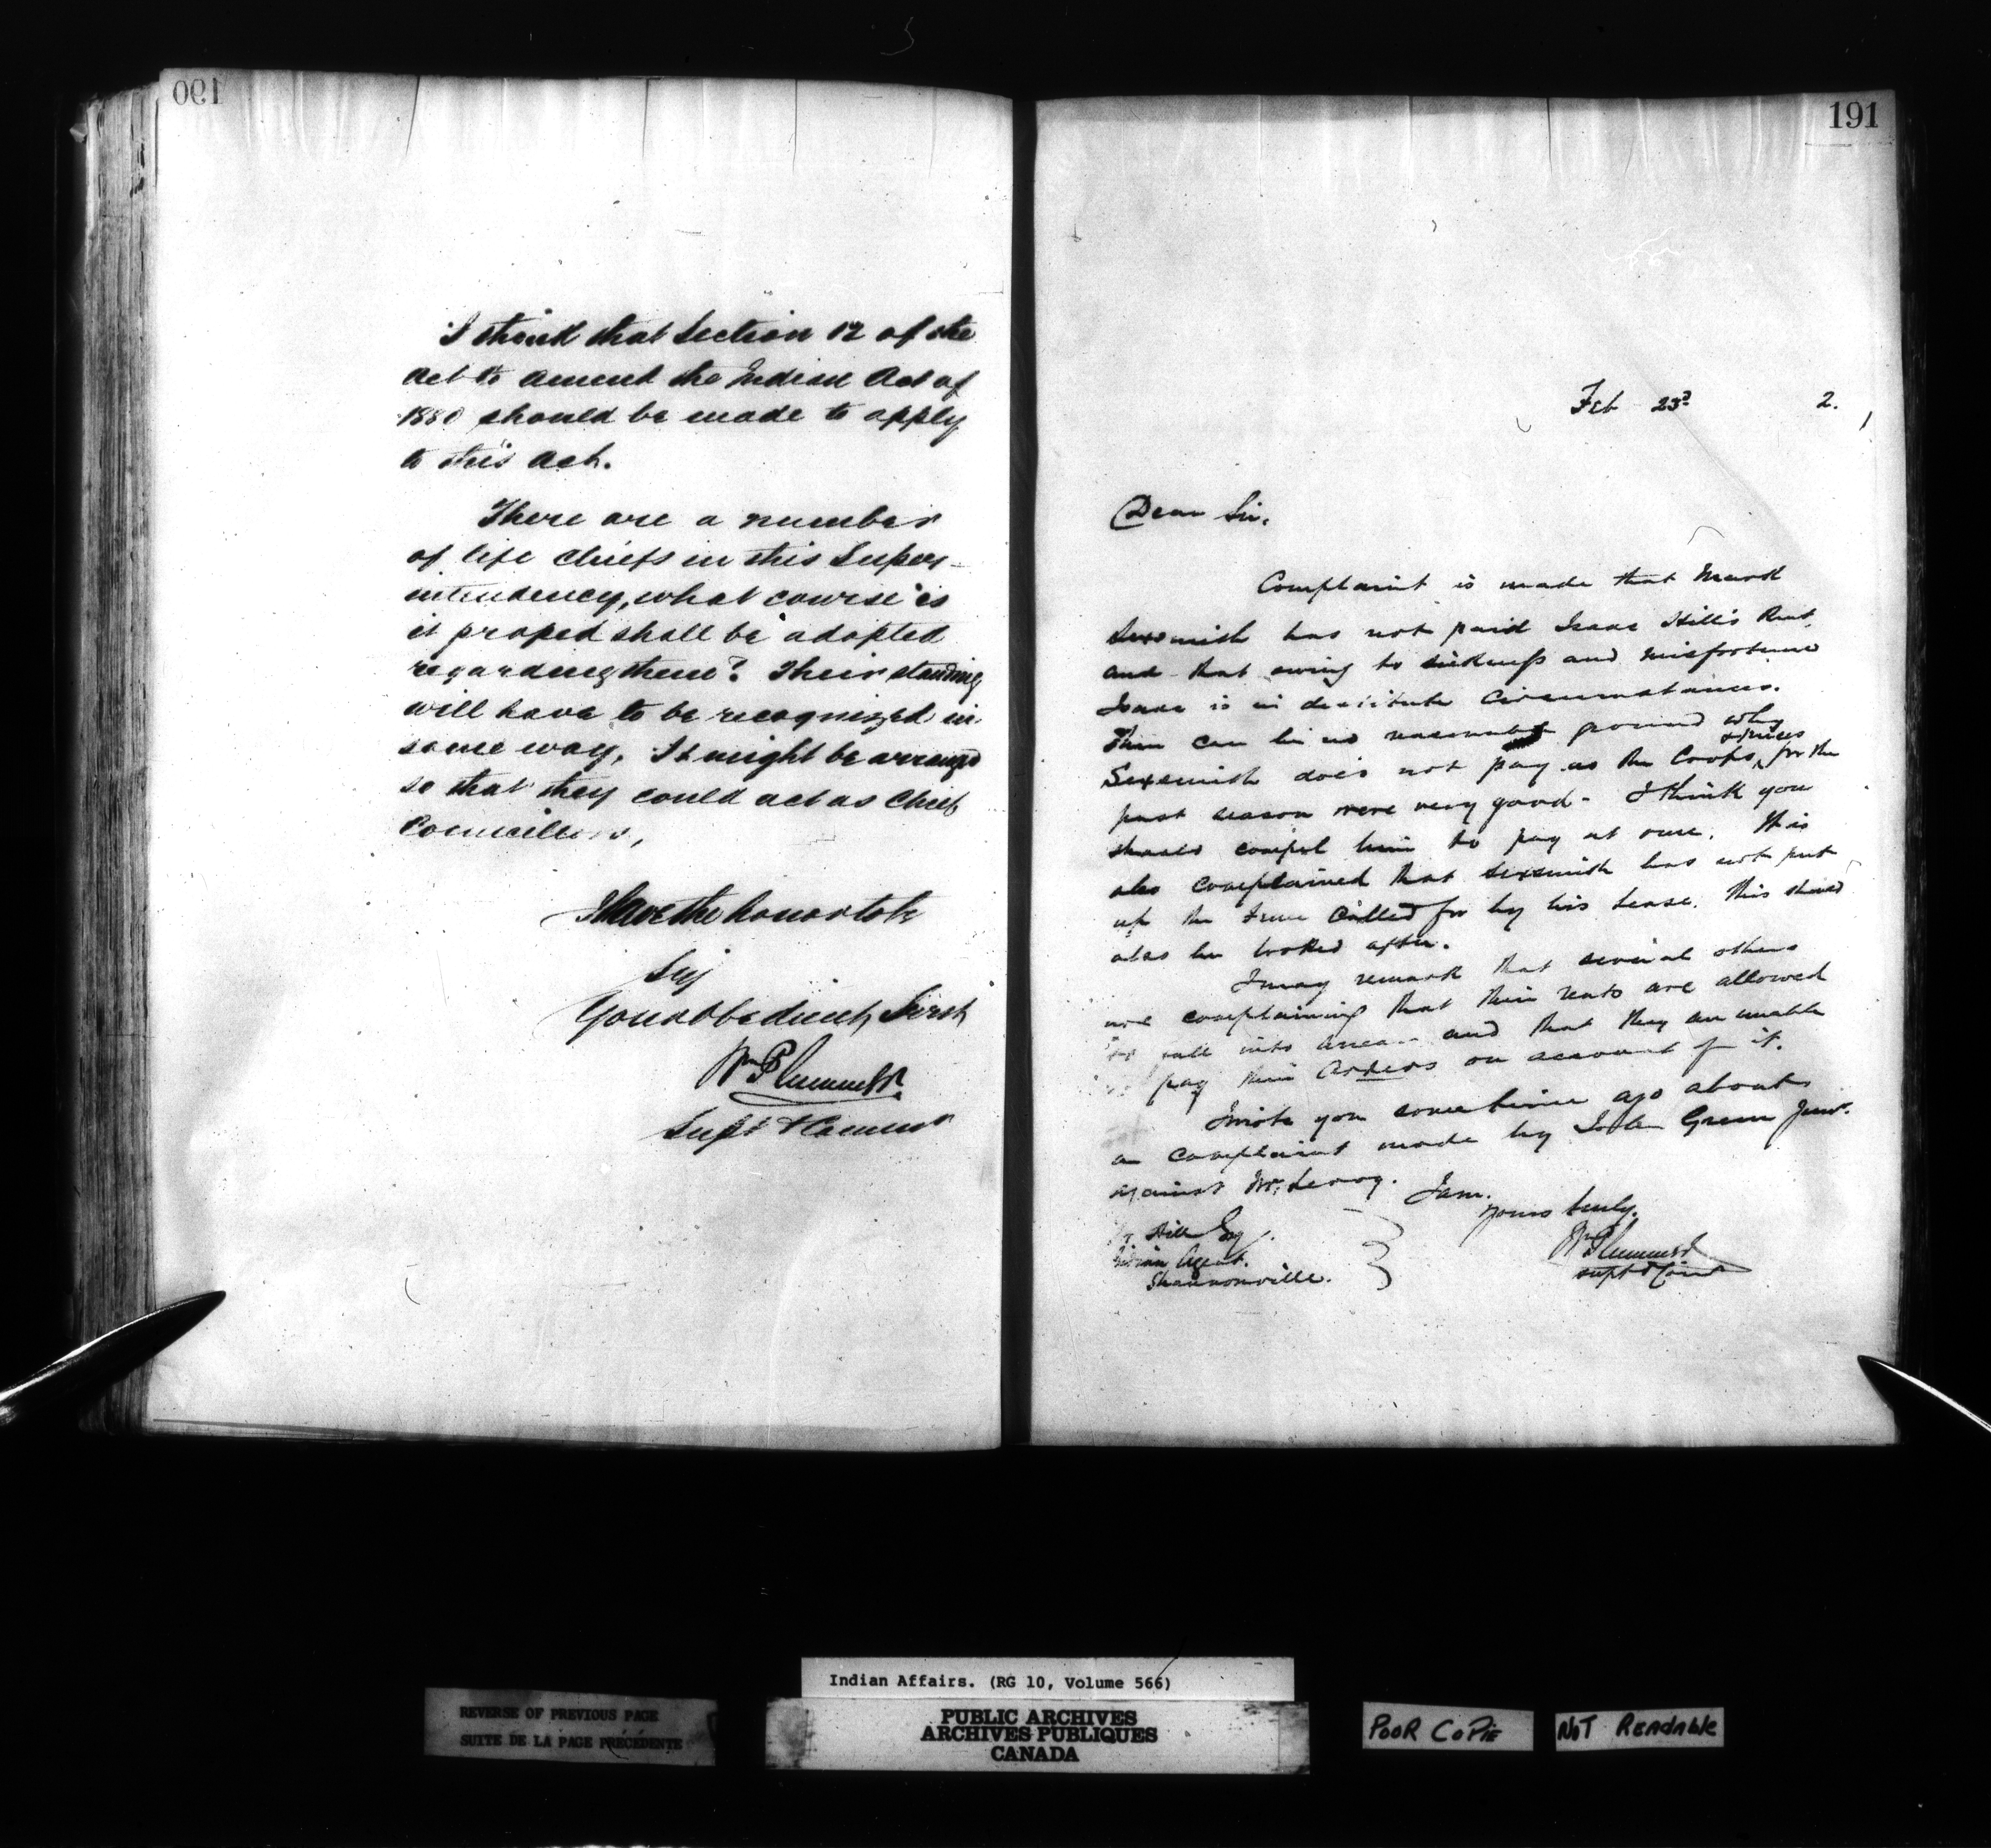 190
I think that Section 12 of the
Act to amend the Indian Act of
1880 should be made to apply
to this Act.
There are a number
of life Chiefs in this Super-
intendency, what course is
it proped shall be adopted
regarding them? Their standing
will have to be recognized in
some way, It might be arranged
so that they could act as Chief
Councillors,
I have the honor to be
Sir
Your Obedient Servt
Wm Plummer
Supt & Commr
191
Feb 23d 2.
Dear Sir,
Complaint is made that Mark
Sexsmith has not paid Isaac Hill's Rent,
and that owing to sickness and misfortune
Isaac is in destitute Circumstances.
There can be no reasonable ground why
Sexsmith does not pay as the Crops & prices for the
past season were very good - I think you
should compel him to pay at once. It is
also complained that Sexsmith has not put
up the fence Called for by his Lease. This should
also be looked after.
I may remark that several others
are complaining that their rents are allowed
to fall into arrears and that they are unable
to pay their Orders on account of it.
I wrote you some time ago about
a complaint made by John Green Junr.
against Mr. Leroy.
I am.
Yours truly.
Wm Plummer
Supt & Comr
Hill Esq.
Indian Agent.
Shannonville.
Indian Affairs. (RG 10, Volume 566)
REVERSE OF PREVIOUS PAGE
SUITE DE LA PAGE PRÉCÉDENTE
PUBLIC ARCHIVES
ARCHIVES PUBLIQUES
CANADA
POOR COPIE
NOT READABLE